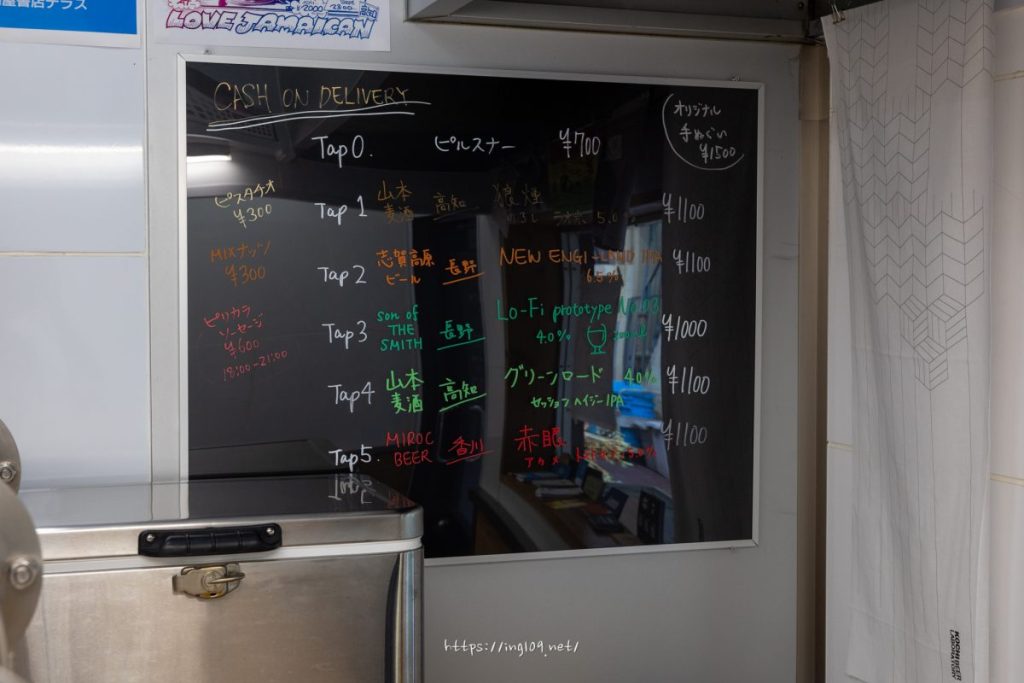 屋書店テラス
¥2000
LOVE JAMAICAN
CASH ON DELIVERY
オリジナル
手ぬぐい
¥1500
Tap 0. ピルスナー ¥700
ピスタチオ
¥300
Tap 1 山本麦酒 高知 狼煙 5.0 ¥1100
MIXナッツ
¥300
Tap 2 志賀高原ビール 長野 NEW ENGLAND IPA 6.5% ¥1100
ピリカラ
ソーセージ
¥600
18:00-21:00
Tap 3 son of THE SMITH 長野 Lo-Fi prototype No.03 40% small ¥1000
Tap 4 山本麦酒 高知 グリーンロード 40% ¥1100
セッションヘイジーIPA
Tap 5. MIROC BEER 香川 赤眼 ¥1100
アカメ
KOCHI BEER
LABORATORY
https://ing109.net/